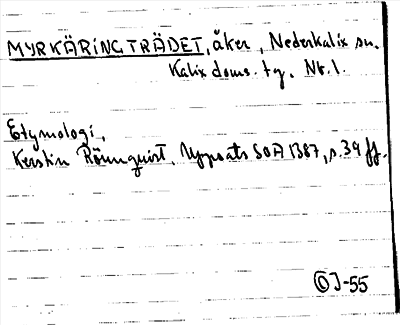 MYRKÄRINGTRÄDET, åker, Nederkalix sn.
Kalix doms. tg. Nb. l.
Etymologi,
Kerstin Rönnquist, Uppsats SOA 1387, s. 34 ff.
OJ-55